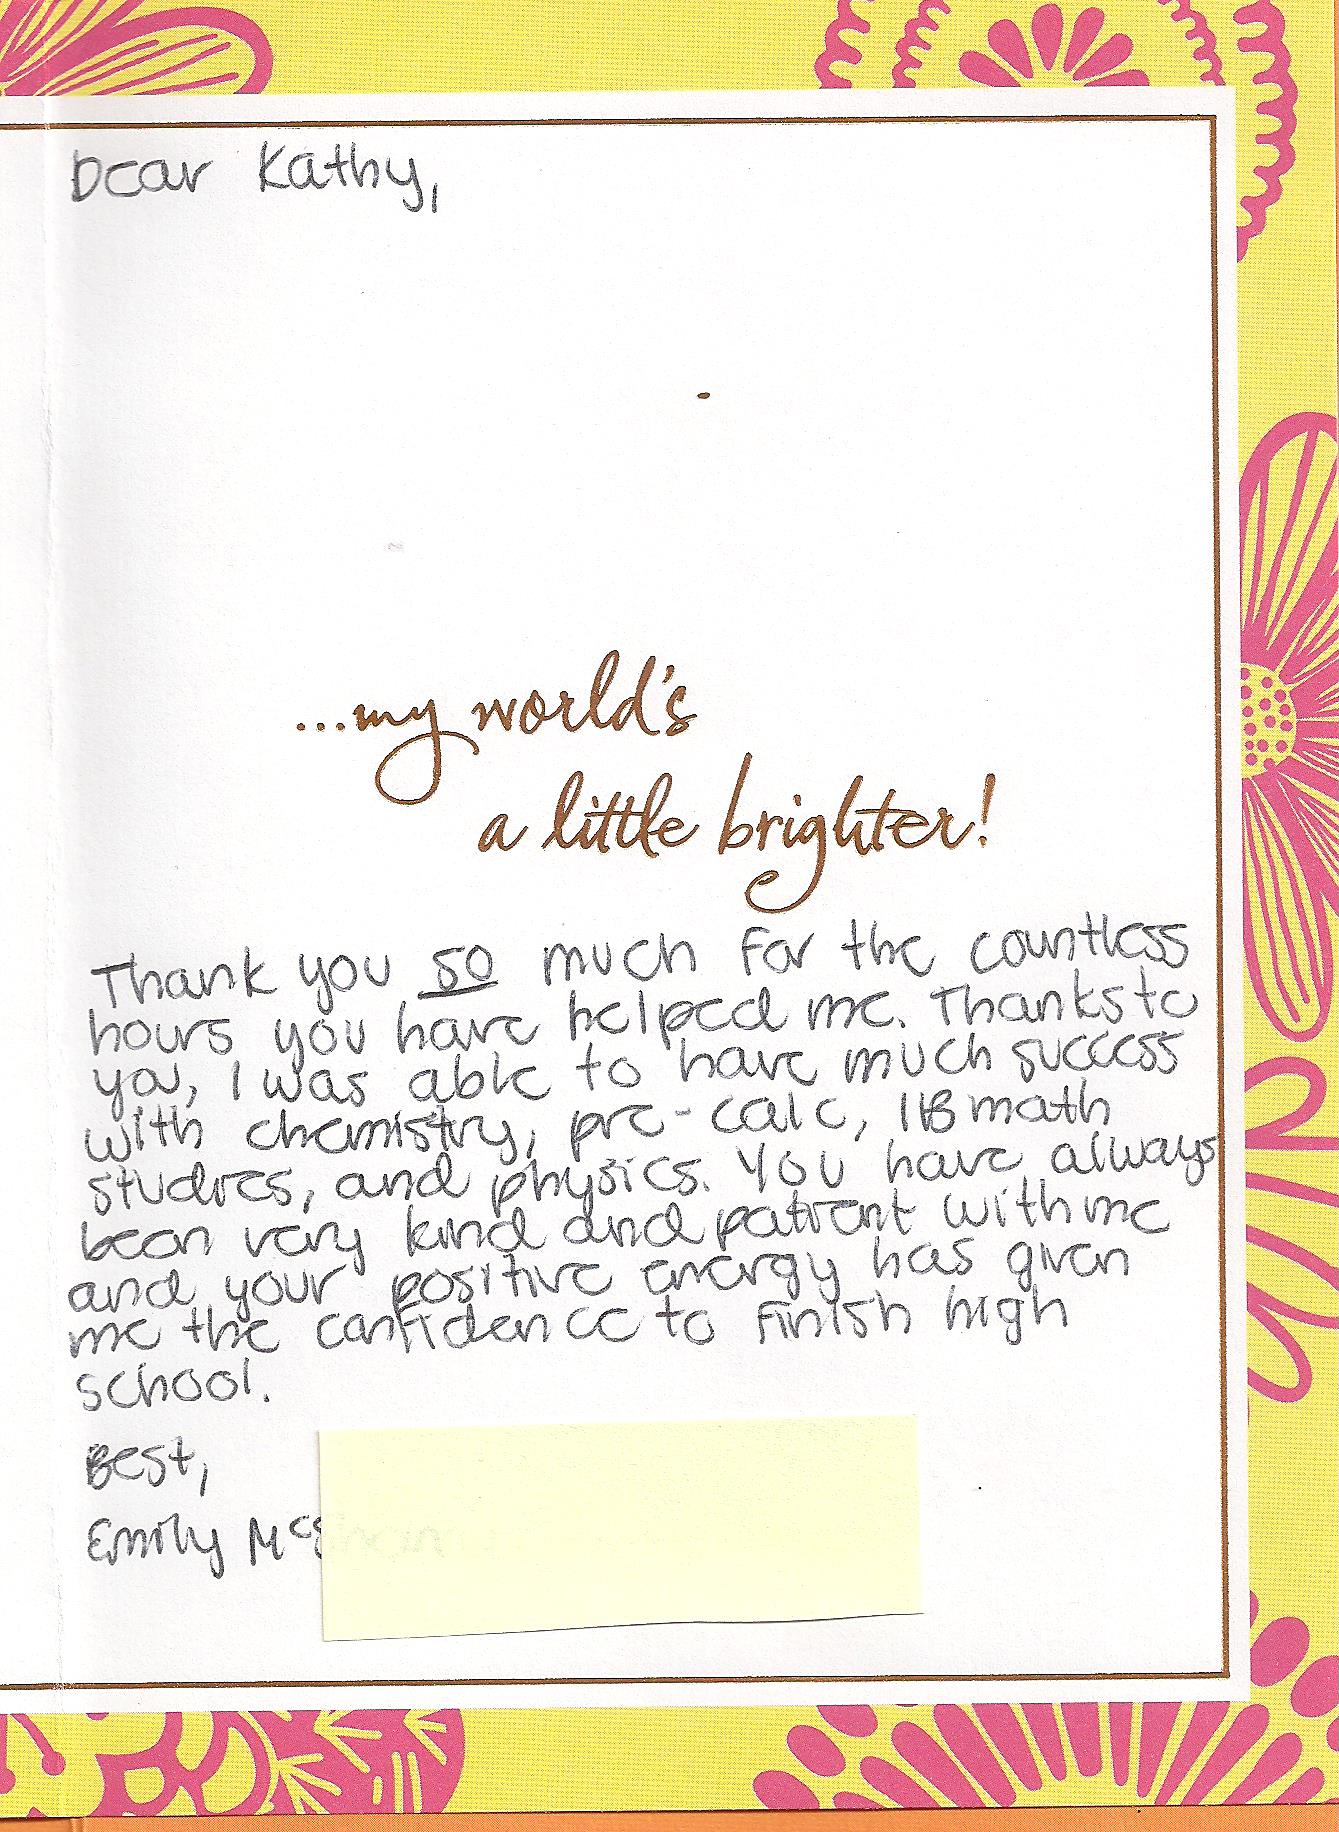 Dear Kathy,
...my world's
a little brighter!
Thank you so much for the countless
hours you have helped me. Thanks to
you, I was able to have much success
with chemistry, pre-calc, IB math
studies, and physics. You have always
been very kind and patient with me
and your positive energy has given
me the confidence to finish high
school.
Best,
Emily